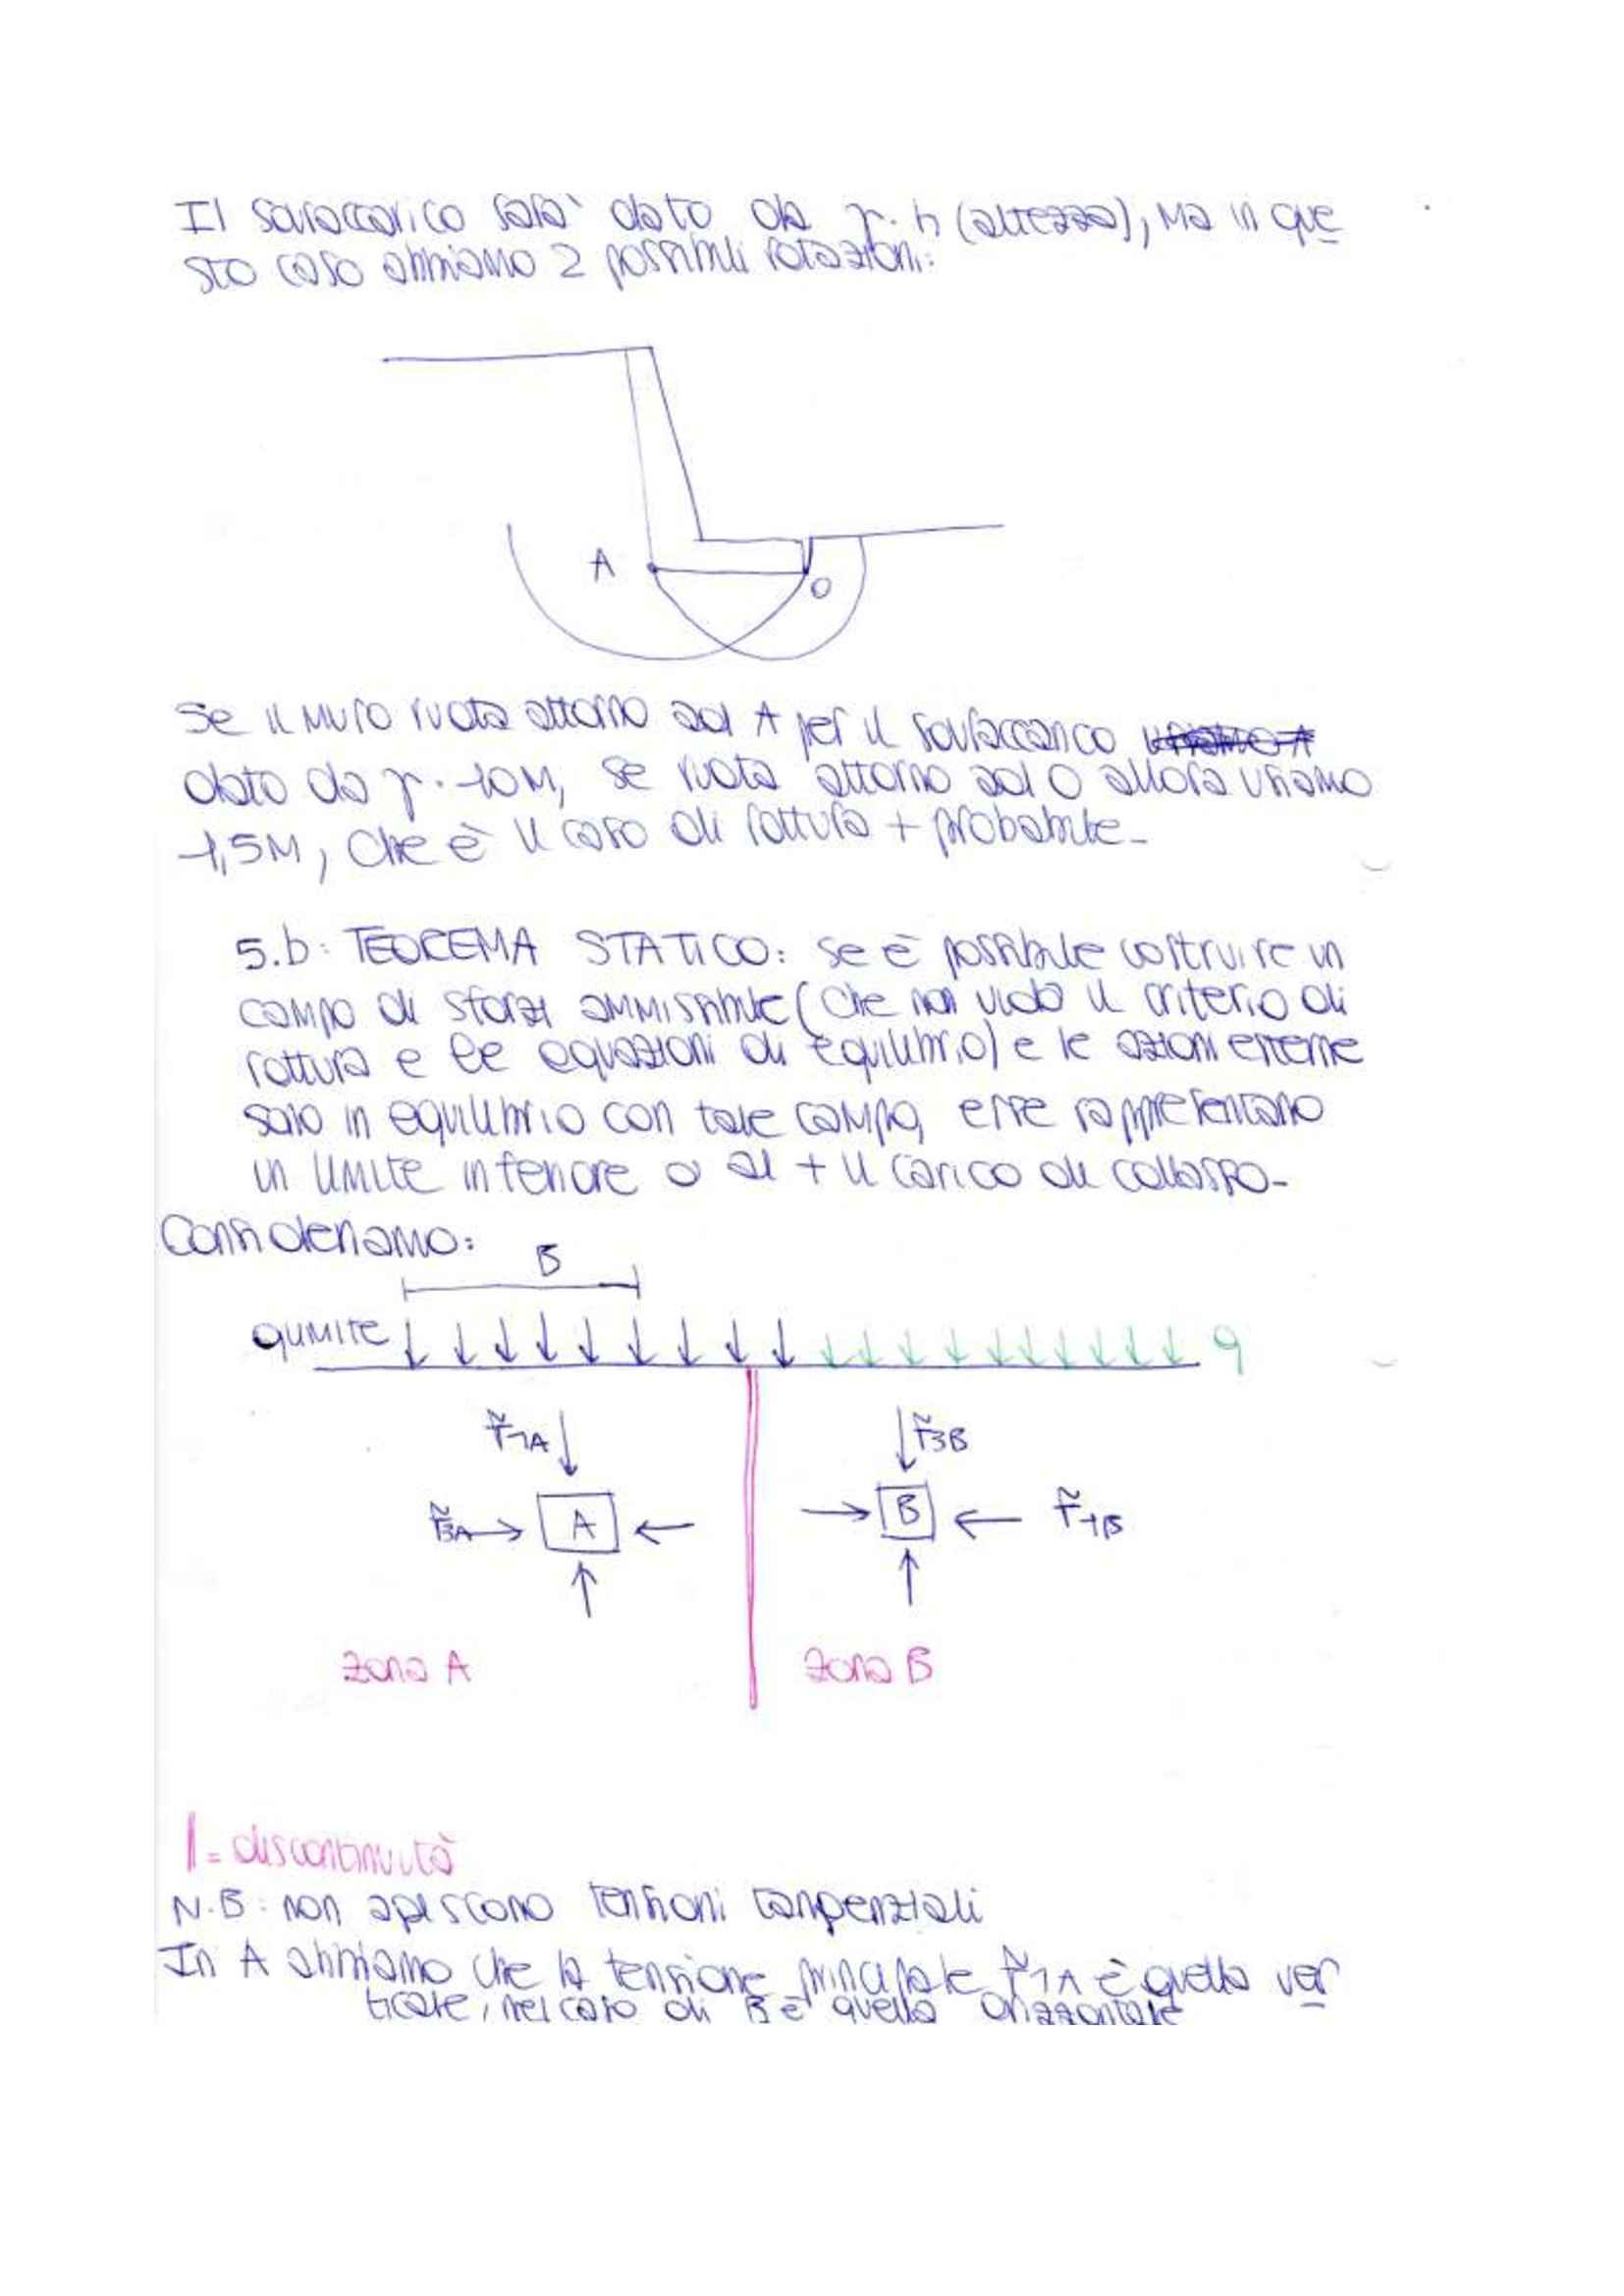 Il sovraccarico sarà dato da γ·h (altezza), ma in que
sto caso abbiamo 2 possibili rotazioni:
A
O
Se il muro ruota attorno ad A per il sovraccarico
dato da γ·10m, se ruota attorno ad O allora usiamo
1,5m, che è il caso di rottura + probabile-
5.b: TEOREMA STATICO: se è possibile costruire un
campo di sforzi ammissibile (che non viola il criterio di
rottura e le equazioni di equilibrio) e le azioni esterne
sono in equilibrio con tale campo, esse rappresentano
un limite inferiore o al + il carico di collasso-
Consideriamo:
B
qLIMITE
q
σ̃1A
σ̃3B
σ̃3A
A
B
σ̃1B
zona A
zona B
| = discontinuità
N.B: non agiscono tensioni tangenziali
In A abbiamo che la tensione principale σ̃1A è quella ver
ticale, nel caso di B è quella orizzontale